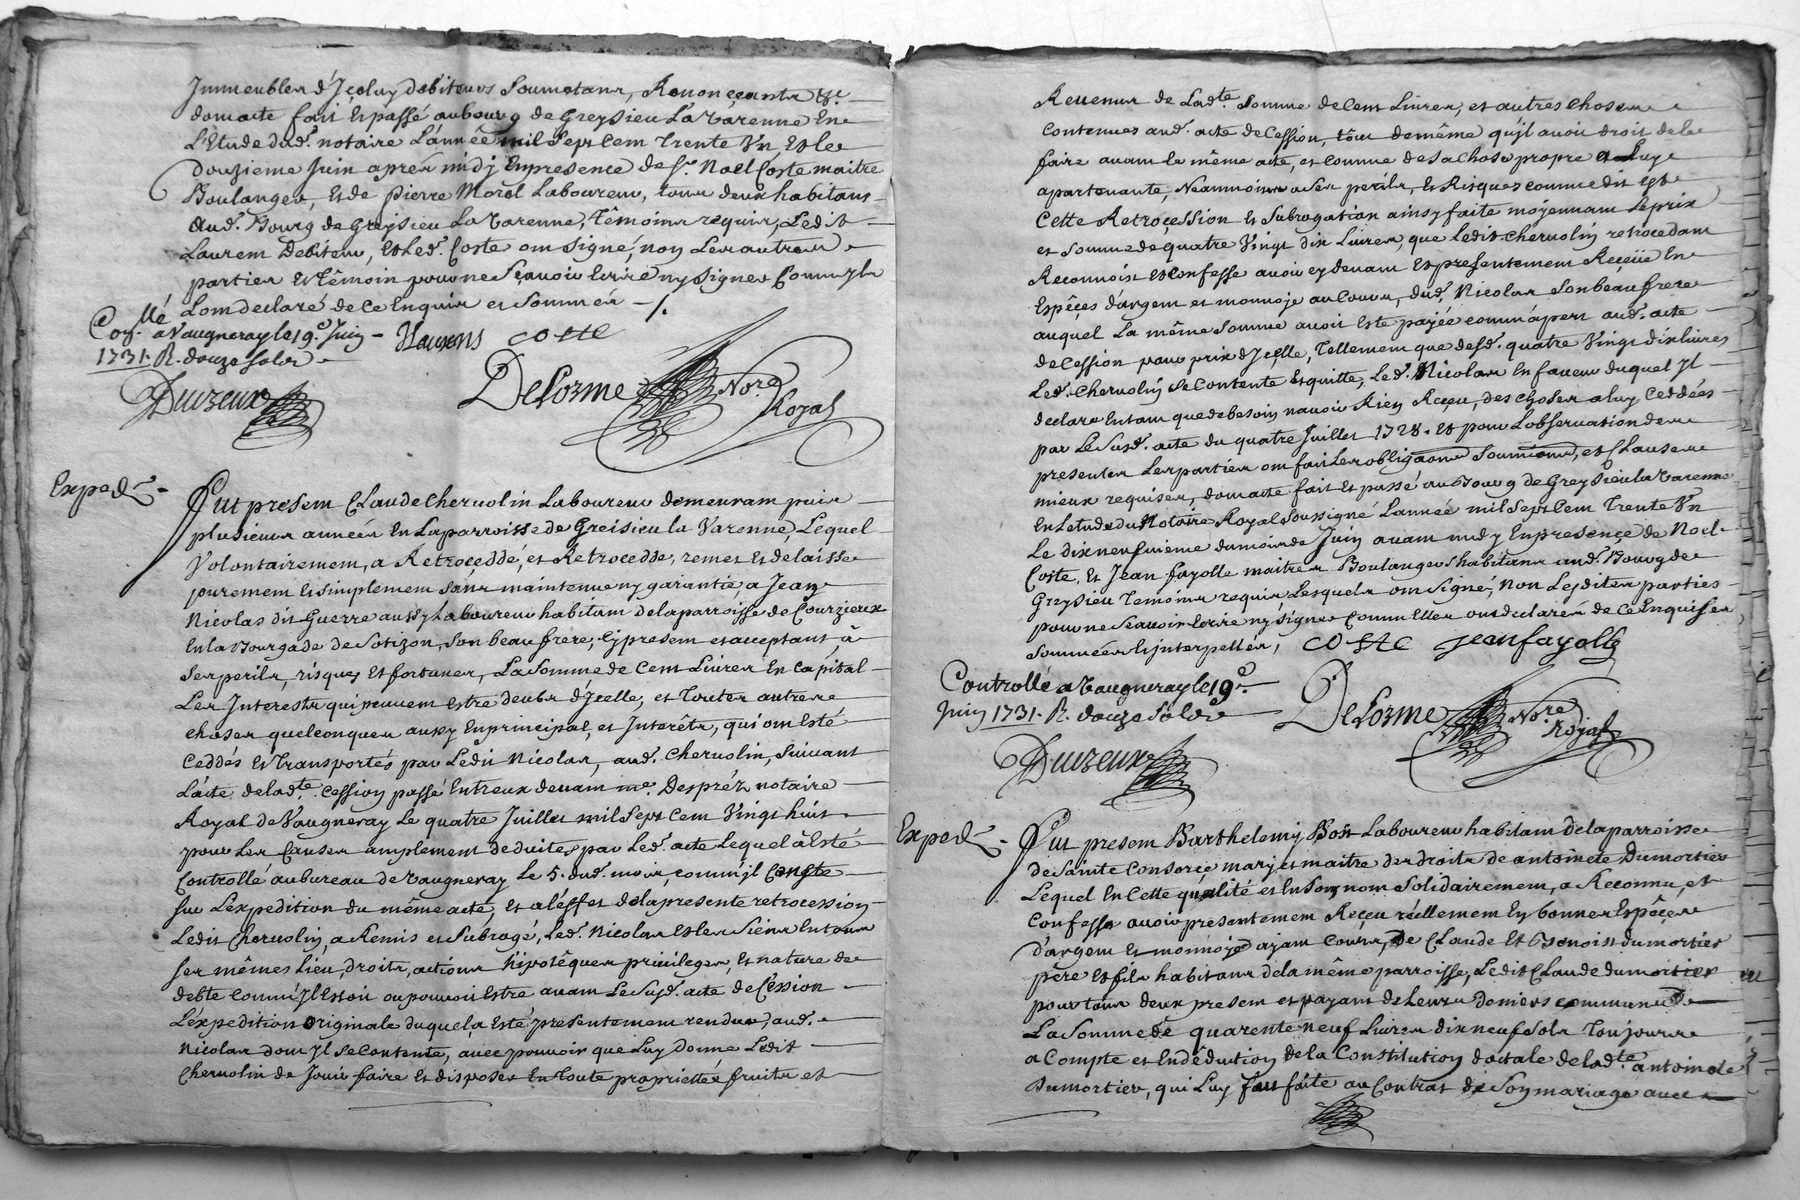 Immeubles d'Jceluy debiteurs Soumetans, Renonçeants &c.
dom acte fait Et passé au bourg de Greysieu La Varenne En
L'Etude dud. notaire L'année mil Sept Cent Trente Vn Et le
douzieme Juin apres midy En presence de Sr. Noel Coste maitre
Boulanger, Et de Pierre Morel Laboureur, tous deux habitans
Aud. Bourg de Greysieu La Varenne, Témoins requis, Ledit
Laurent Debiteur, Et Led. Coste ont Signé, non Les autres
parties Et Témoin pour ne Sçavoir Ecrire ny Signer Comm'Jls
L'ont declaré de ce Enquis et Sommés -/.
Con.llé a Vaugneray le 19.e Juin - Coste
1731. R. douze Sols
DeLorme No.re
Royal
Exped.
Fut present Claude Chervolin Laboureur demeurant puis
plusieurs années En La parroisse de Greisieu la Varenne, Lequel
Volontairement, a Retroçeddé, et Retrocedde, remet Et delaisse
purement Et Simplement Sans maintenue ny garantie, a Jean
Nicolas dit Guerre aussy Laboureur habitant de la parroisse de Courzieux
En la Bourgade de Sotizon, Son beau frere, Cy present et acceptant, à
Ses perils, risques et fortunes, La Somme de Cent Livres En Capital
Les Interests qui peuvent Estre deubs d'Jcelle, et Toutes autres
choses quelconques aussy En principal, et Interêts, qui ont Esté
Ceddés Et Transportés par Ledit Nicolas, aud. Chervolin, Suivant
L'acte de lad.te Cession passé Entr'eux devant me. Despréz notaire
Royal de Vaugneray Le quatre Juillet mil Sept Cent Vingt huit
pour Les Causes amplement deduites par Led. acte Lequel à Esté
Controllé au bureau de Vaugneray Le 5. dud. mois, comm'jl Conste
Sur L'expedition du même acte, et a l'effet de la presente retrocession
Ledit Chervolin, a Remis et Subrogé, Led. Nicolas Et les Siens En tous
Ses mêmes Lieu, droits, actions hipotêques privileges, Et nature de
debte comm'Jl Estoit ou pouvoit Estre avant Le Susd. acte de Cession
L'expedition originale duquel a Esté presentement rendue, aud.
Nicolas dont Jl Se Contente, avec pouvoir que Luy donne Ledit
Chervolin de Jouir faire Et disposer En Toute proprietée fruits et
Revenus de Lad.te Somme de Cent Livres, et autres choses
Contenues aud. acte de Cession, tout de même qu'jl avoit droit de le
faire avant le même acte, et comme de Sa chose propre a Luy
apartenante, Neanmoins a Ses perils, Et Risques comme dit est
Cette Retroçession Et Subrogation ainsy faite moyennant Le prix
et Somme de quatre Vingt dix Livres, que Ledit Chervolin retrocedant
Reconnoist Et Confesse avoir cy devant Et presentement Reçeüe En
Espêces d'argent et monnoje au Cours, dud. Nicolas Son beau frere
auquel La même Somme avoit Esté payée comm'àpert aud. acte
de Cession pour prix d'Jcelle, Tellement que desd. quatre Vingt dix livres
Led. Chervolin Se Contente Et quitte, Led. Nicolas En faveur duquel Jl
declare En tant que de besoin n'avoir Rien Reçeu, des choses a luy Ceddées
par Le Susd. acte du quatre Juillet 1728. Et pour L'observation des
presentes Les parties ont fait Les obligaõns Soumiõns, et Clauses
mieux requises, dont acte fait Et passé au Bourg de Greysieu la Varenne
En L'etude du Notaire Royal Soussigné L'année mil Sept Cent Trente Vn
Le dix neufvieme du mois de Juin avant midy En presençe de Noel
Coste, Et Jean fayolle maitres Boulangers habitans aud. Bourg de
Greysieu Temoins requis, Lesquels ont Signé, Non Lesdites parties
pour ne Sçavoir Ecrire ny Signer Comm'Elles ont declaré de Ce Enquises
Sommées Et interpellés, Coste Jean fayolle
Controllé a Vaugneray le 19.e
Juin 1731. R. douze Sols
DeLorme No.re
Royal
Exped.
Fut present Barthelemy Bost Laboureur habitant de la parroisse
de Sainte Consorçe mary et maitre des droits de antoinete Dumortier
Lequel En Cette qualité et En Son nom Solidairement, a Reconnu, et
Confessé avoir presentement Reçeu réellement En bonnes Espêces
d'argent Et monnoje ajant Cours, De Claude Et Benoist Dumortier
pêre Et fils habitans de la même parroisse, Ledit Claude dumortier
pour tous deux present et payant de Leurs deniers communs
La Somme de quarente neuf Livres dix neuf Sols Toujours
a Compte et En dêduction de la Constitution dotale de lad.te antoinete
Dumortier, qui Luy fut faite au Contrat de Son mariage avec